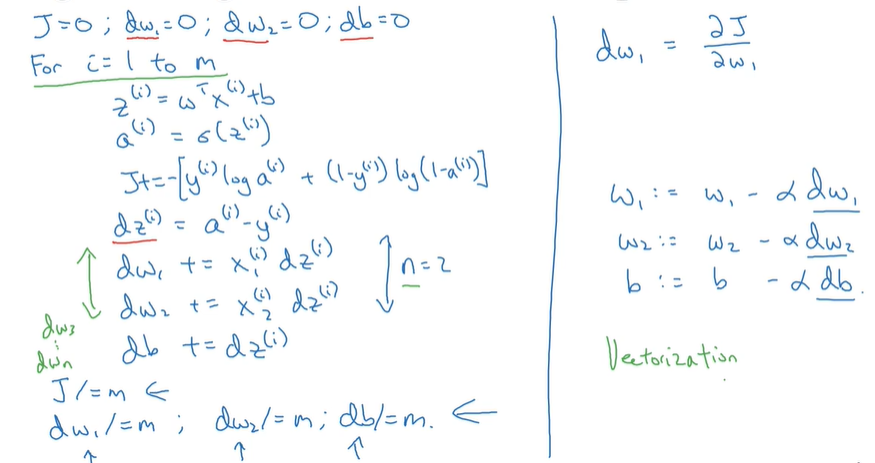 J=0 ; dw₁=0 ; dw₂=0 ; db=0
For i=1 to m
z⁽ⁱ⁾ = ωᵀx⁽ⁱ⁾+b
a⁽ⁱ⁾ = σ(z⁽ⁱ⁾)
J+=-[y⁽ⁱ⁾ log a⁽ⁱ⁾ + (1-y⁽ⁱ⁾) log(1-a⁽ⁱ⁾)]
dz⁽ⁱ⁾ = a⁽ⁱ⁾-y⁽ⁱ⁾
dw₁ += x₁⁽ⁱ⁾ dz⁽ⁱ⁾
dw₂ += x₂⁽ⁱ⁾ dz⁽ⁱ⁾
n=2
db += dz⁽ⁱ⁾
dw₃
⋮
dwₙ
J/=m ←
dw₁/=m ; dw₂/=m ; db/=m. ←
dw₁ = ∂J/∂w₁
w₁ := w₁ - α dw₁
w₂ := w₂ - α dw₂
b := b - α db.
Vectorization